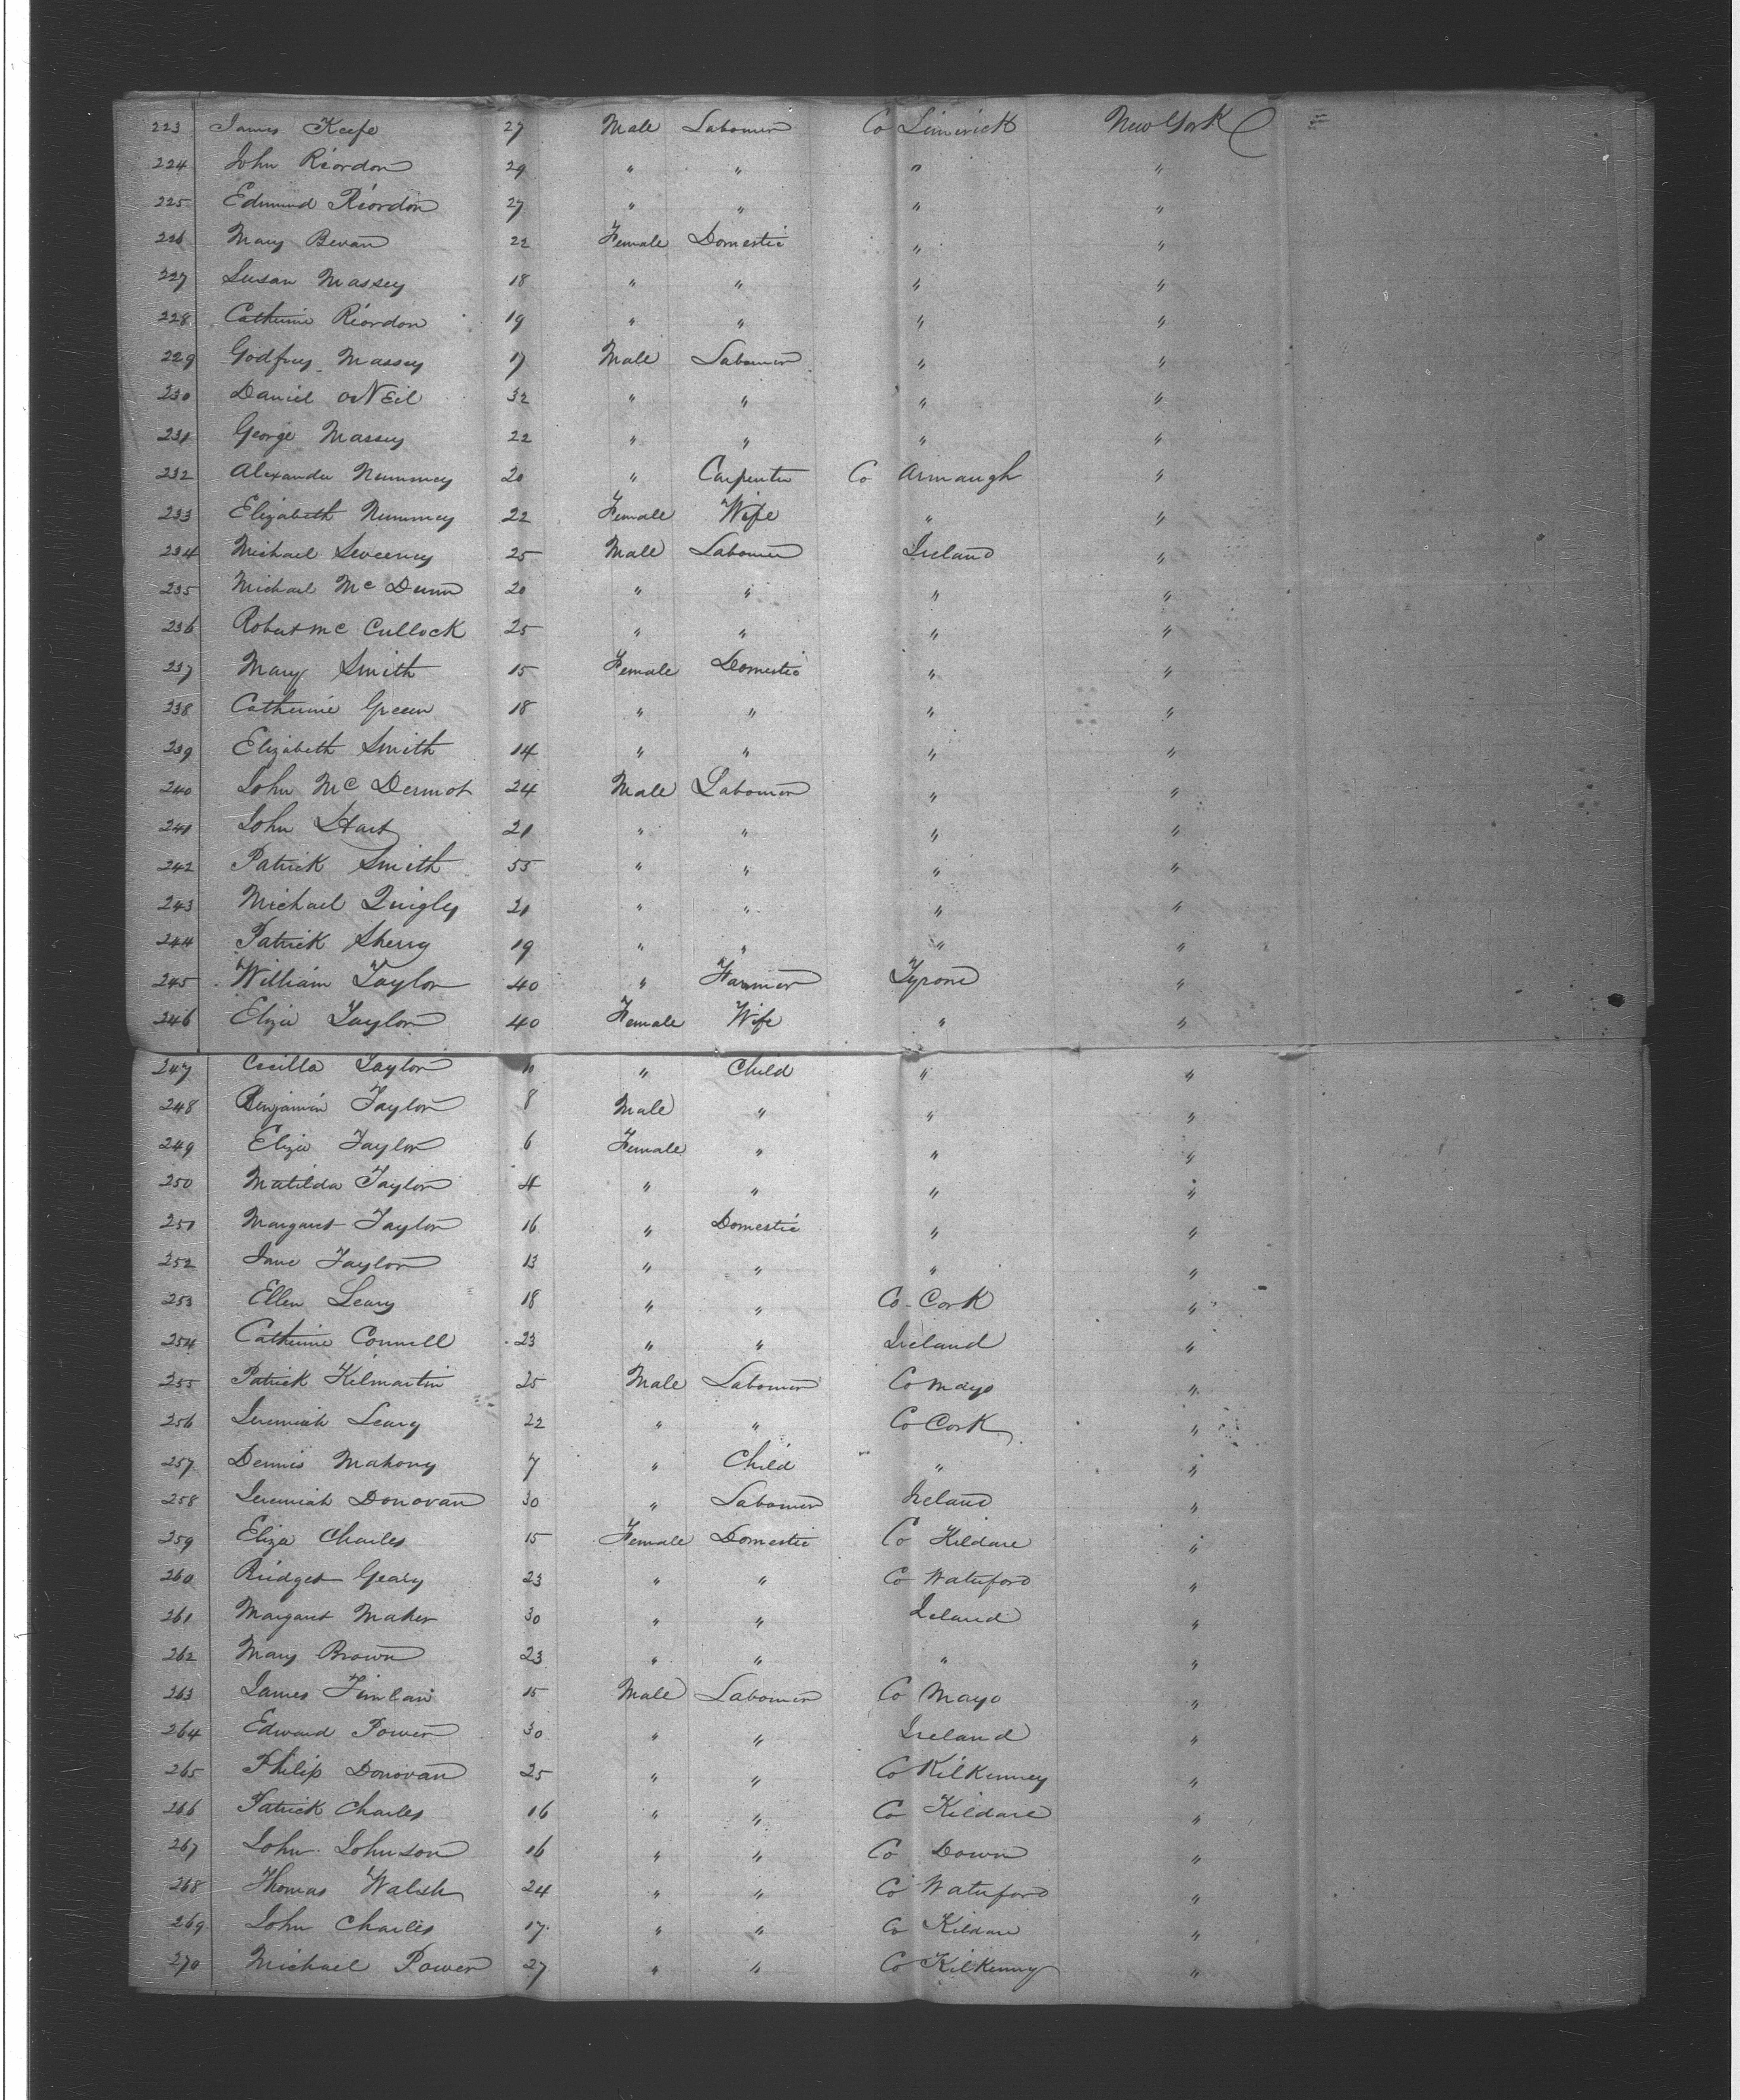 223 James Keefe 27 Male Labourer Co Limerick New York
224 John Riordon 29 " " " "
225 Edmund Riordon 27 " " " "
226 Mary Bevan 22 Female Domestic " "
227 Susan Massey 18 " " " "
228 Catherine Riordon 19 " " " "
229 Godfrey Massey 17 Male Labourer " "
230 Daniel ONEil 32 " " " "
231 George Massey 22 " " " "
232 Alexander Nummey 20 " Carpenter Co Armaugh "
233 Elizabeth Nummey 22 Female Wife " "
234 Michael Sweeney 25 Male Labourer Ireland "
235 Michael Mc Dunn 20 " " " "
236 Robert Mc Cullock 25 " " " "
237 Mary Smith 15 Female Domestic " "
238 Catherine Green 18 " " " "
239 Elizabeth Smith 14 " " " "
240 John Mc Dermot 24 Male Labourer " "
241 John Hart 21 " " " "
242 Patrick Smith 55 " " " "
243 Michael Quigley 21 " " " "
244 Patrick Sherry 19 " " " "
245 William Taylor 40 " Farmer Tyrone "
246 Eliza Taylor 40 Female Wife " "
247 Cecilla Taylor 11 " Child " "
248 Benjamin Taylor 8 Male " " "
249 Eliza Taylor 6 Female " " "
250 Matilda Taylor 4 " " " "
251 Margaret Taylor 16 " Domestic " "
252 Jane Taylor 13 " " " "
253 Ellen Leary 18 " " Co Cork "
254 Catherine Connell 23 " " Ireland "
255 Patrick Kilmartin 25 Male Labourer Co Mayo "
256 Jeremiah Leary 22 " " Co Cork "
257 Dennis Mahony 7 " Child " "
258 Jeremiah Donovan 30 " Labourer Ireland "
259 Eliza Charles 15 Female Domestic Co Kildare "
260 Bridget Geary 23 " " Co Waterford "
261 Margaret Maher 30 " " Ireland "
262 Mary Brown 23 " " " "
263 James 15 Male Labourer Co Mayo "
264 Edward Power 30 " " Ireland "
265 Philip Donovan 25 " " Co Kilkenney "
266 Patrick Charles 16 " " Co Kildare "
267 John Johnson 16 " " Co Down "
268 Thomas Walsh 24 " " Co Waterford "
269 John Charles 17 " " Co Kildare "
270 Michael Power 27 " " Co Kilkenny "